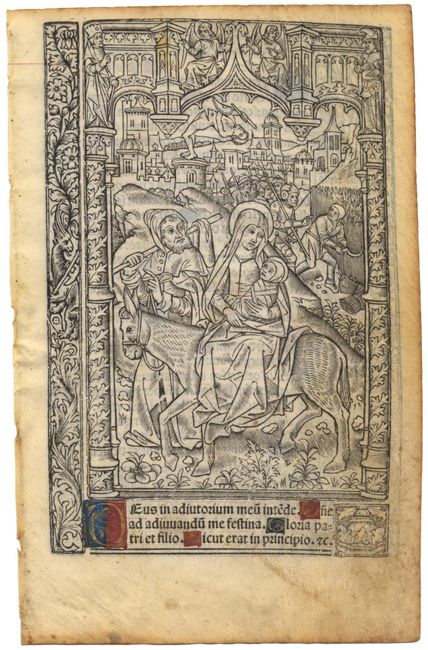 DEus in adiutorium meū intēde. Dñe
ad adiuvandū me festina. Gloria pa-
tri et filio. Sicut erat in principio. ⁊c.